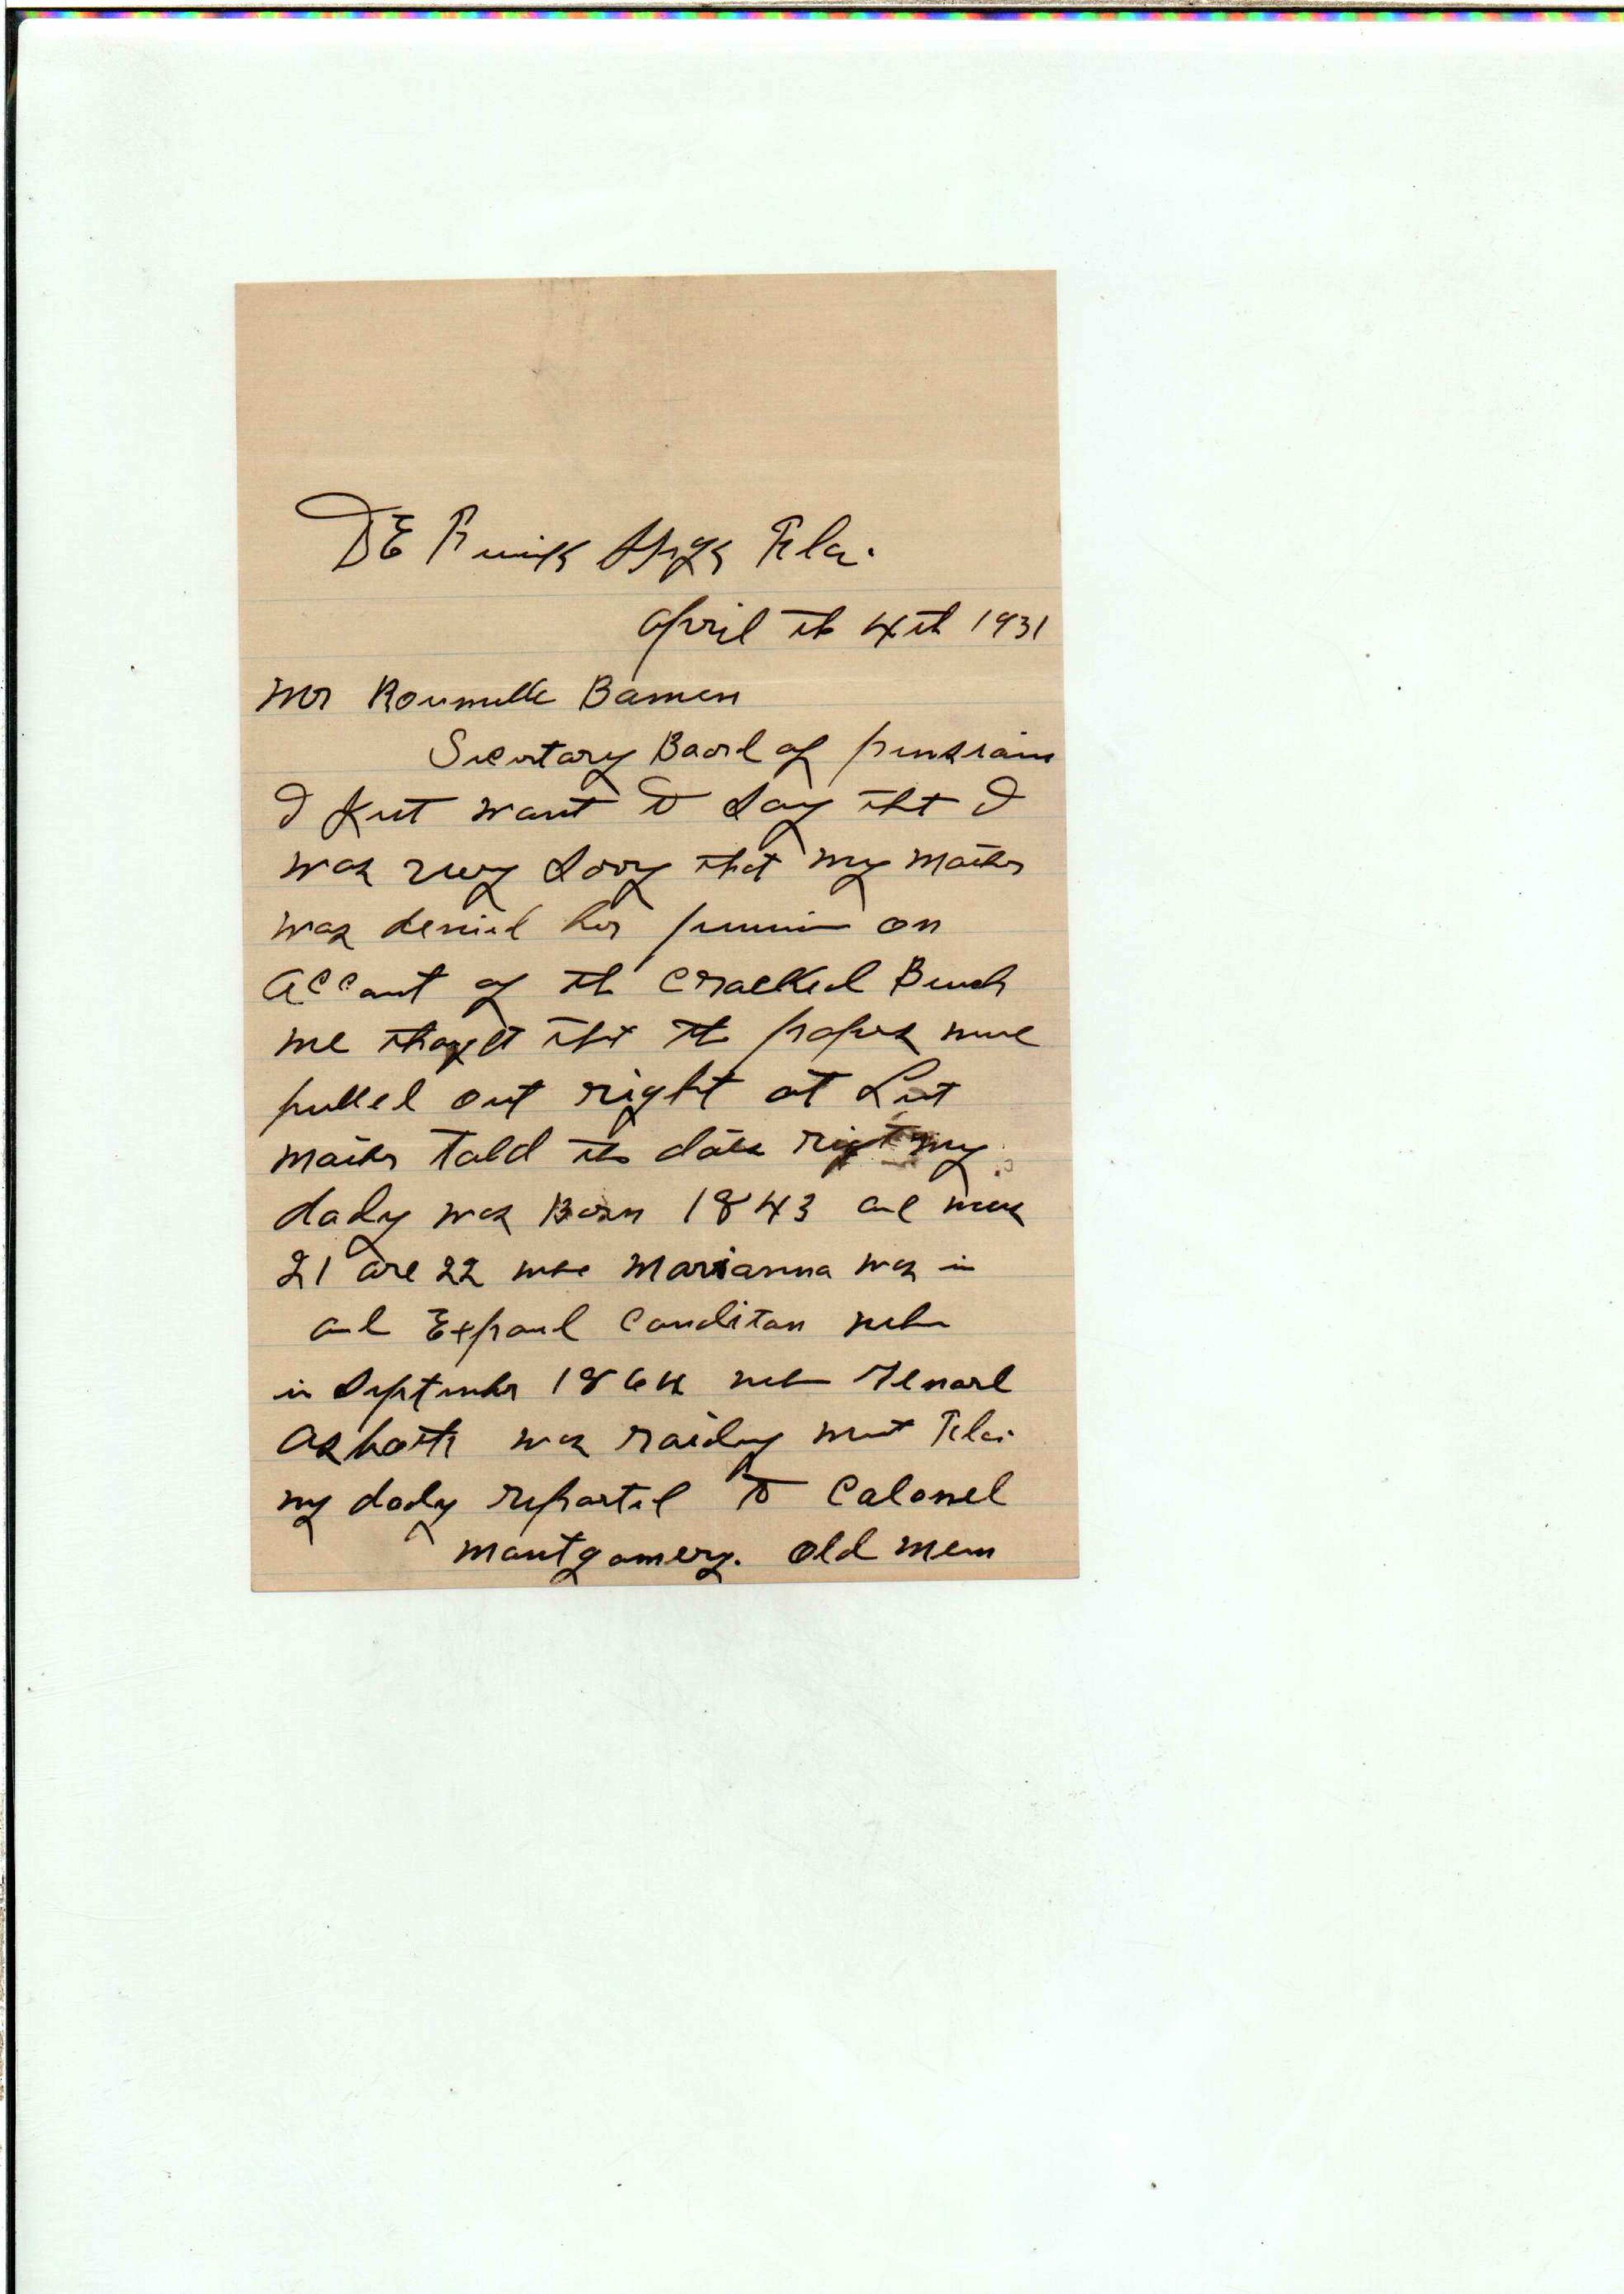 DE Funiak Spgs Fla.
April th 4th 1931
Mr Bowen
Secretary Board of pensions
I Just want to say that I
was very sory that my mother
was denied her pension on
account of the cracked Bench
we thought that the papers were
pulled out right at
mother Told the date right my
dady was Born 1843 and was
21 are 22 Marianna was in
and Expoud Condition when
in September 1864 when Genarl
Asboth was raiding West Fla.
my dady reported to Colonel
Montgomery. old men